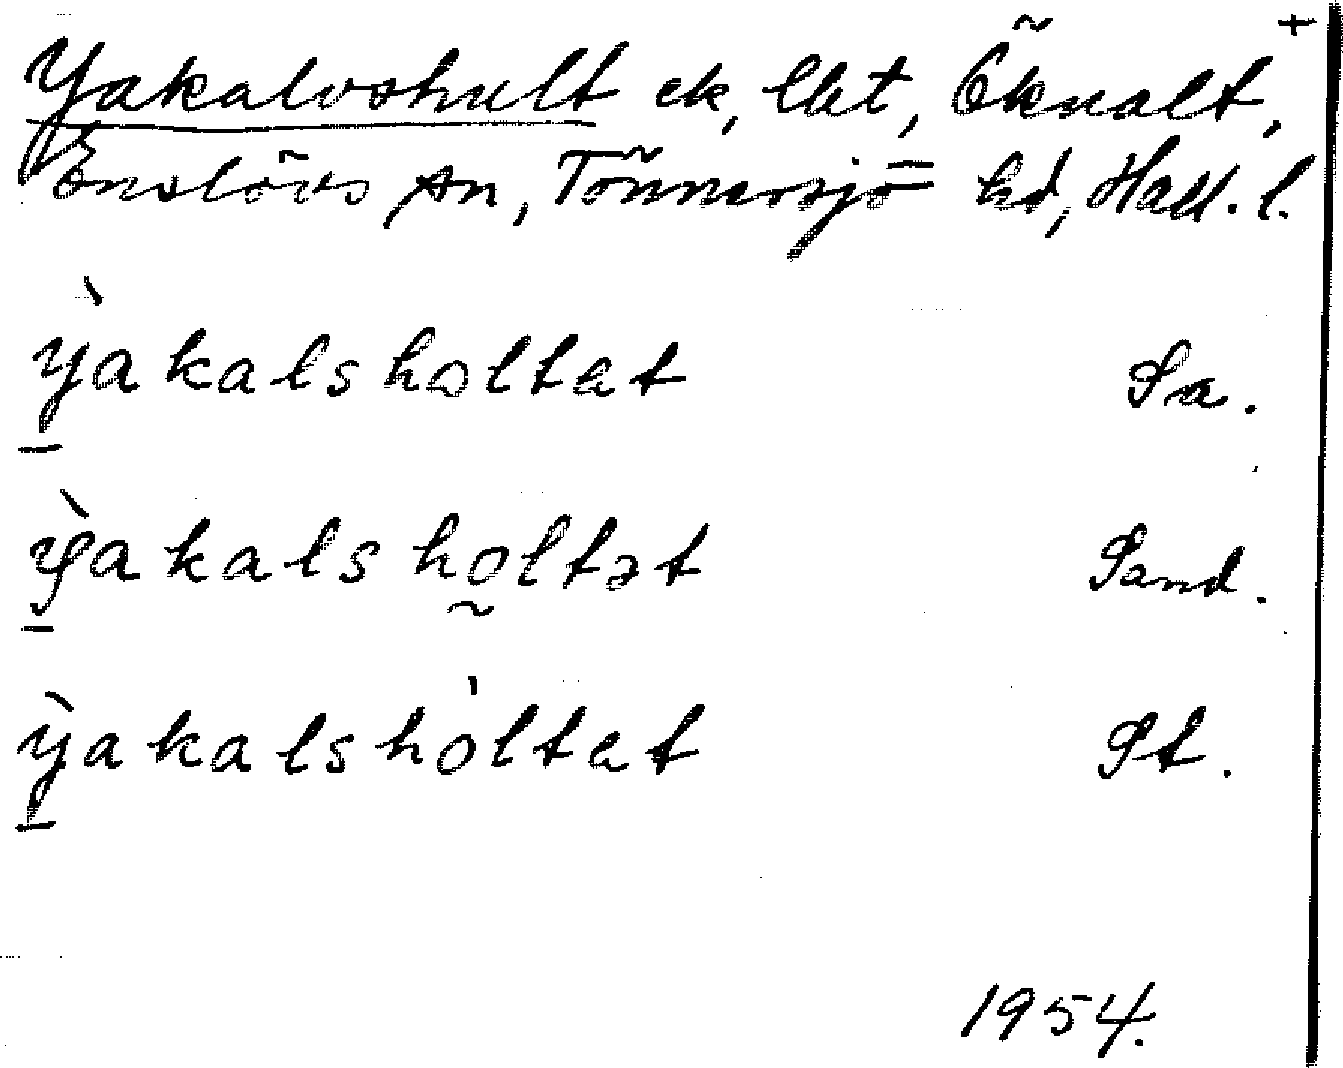 +
Yakalvshult ek, lht, Öknalt,
Enslövs sn, Tönnersjö hd, Hall. l.
yakalsholtat Sa.
yakalsholtət Sand.
yakalsholtet St.
1954.